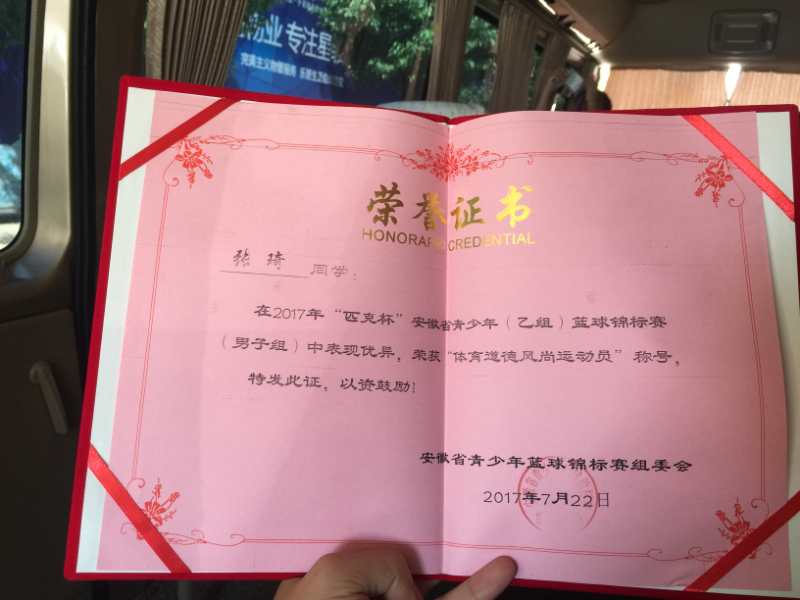 专注星
荣誉证书
HONORAPY CREDENTIAL
张琦 同学：
在2017年“匹克杯”安徽省青少年（乙组）篮球锦标赛
（男子组）中表现优异，荣获“体育道德风尚运动员”称号，
特发此证，以资鼓励！
安徽省青少年篮球锦标赛组委会
2017年7月22日